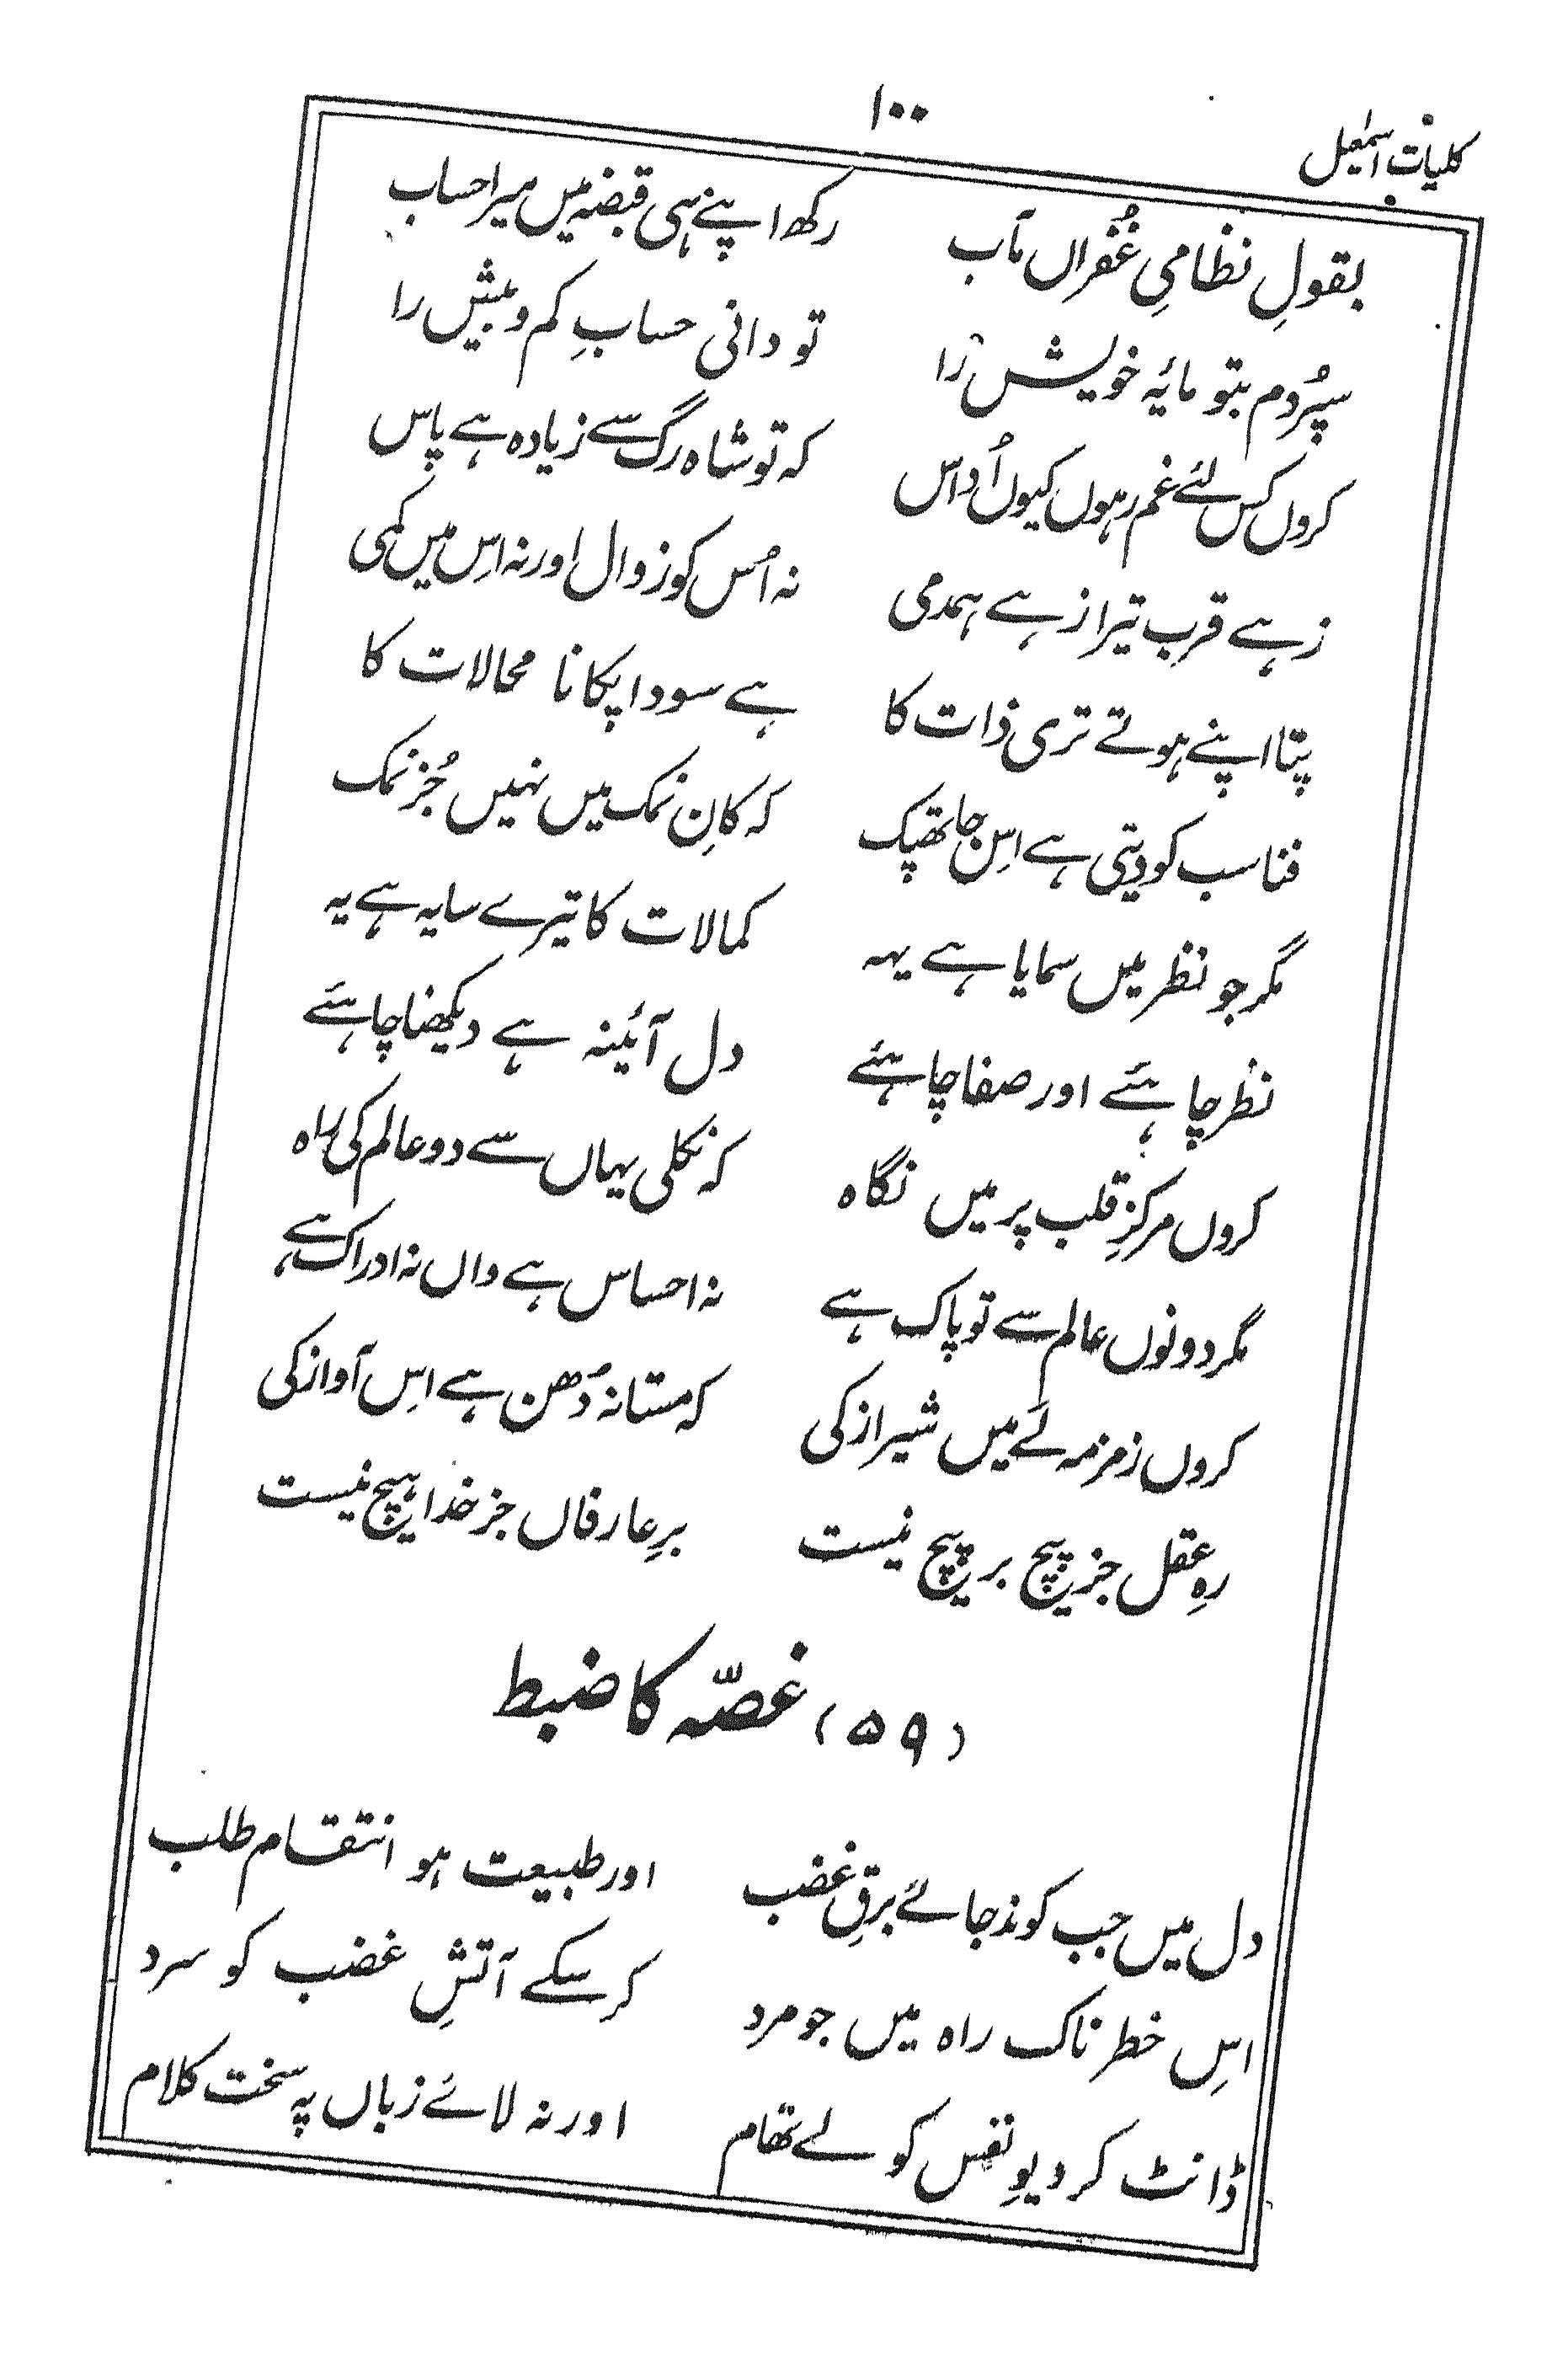 کلیاتِ اسمٰعیل
۱۰۰
بقولِ نظامیِ غُفراں مآب رکھ اپنے ہی قبضہ میں میرا حساب
سپُردم بتو مائیہ خویش را تو دانی حسابِ کم و بیش را
کروں کس لئے غم رہوں کیوں اُداس کہ تو شاہ رگ سے زیادہ ہے پاس
زہے قرب تیرا زہے ہمدمی نہ اُس کو زوال اور نہ اِس میں کمی
پتا اپنے ہوتے تری ذات کا ہے سودا پکانا محالات کا
فنا سب کو دیتی ہے اِس جا تھپک کہ کانِ نمک میں نہیں جُز نمک
مگر جو نظر میں سمایا ہے یہہ کمالات کا تیرے سایہ ہے یہ
نظر چاہئے اور صفا چاہئے دل آئینہ ہے دیکھنا چاہئے
کروں مرکزِ قلب پر میں نگاہ کہ نکلی یہاں سے دو عالم کی راہ
مگر دونوں عالم سے تو پاک ہے نہ احساس ہے واں نہ ادراک ہے
کروں زمزمہ لَے میں شیراز کی کہ مستانہ دُھن ہے اِس آواز کی
رہِ عقل جز پیچ بر پیچ نیست برِ عارفاں جز خدا ہیچ نیست
(۵۹) غصّہ کا ضبط
دل میں جب کوند جائے برقِ غضب اور طبیعت ہو انتقام طلب
اِس خطرناک راہ میں جو مرد کر سکے آتشِ غضب کو سرد
ڈانٹ کر دیوِ نفس کو لے تھام اور نہ لائے زباں پہ سخت کلام